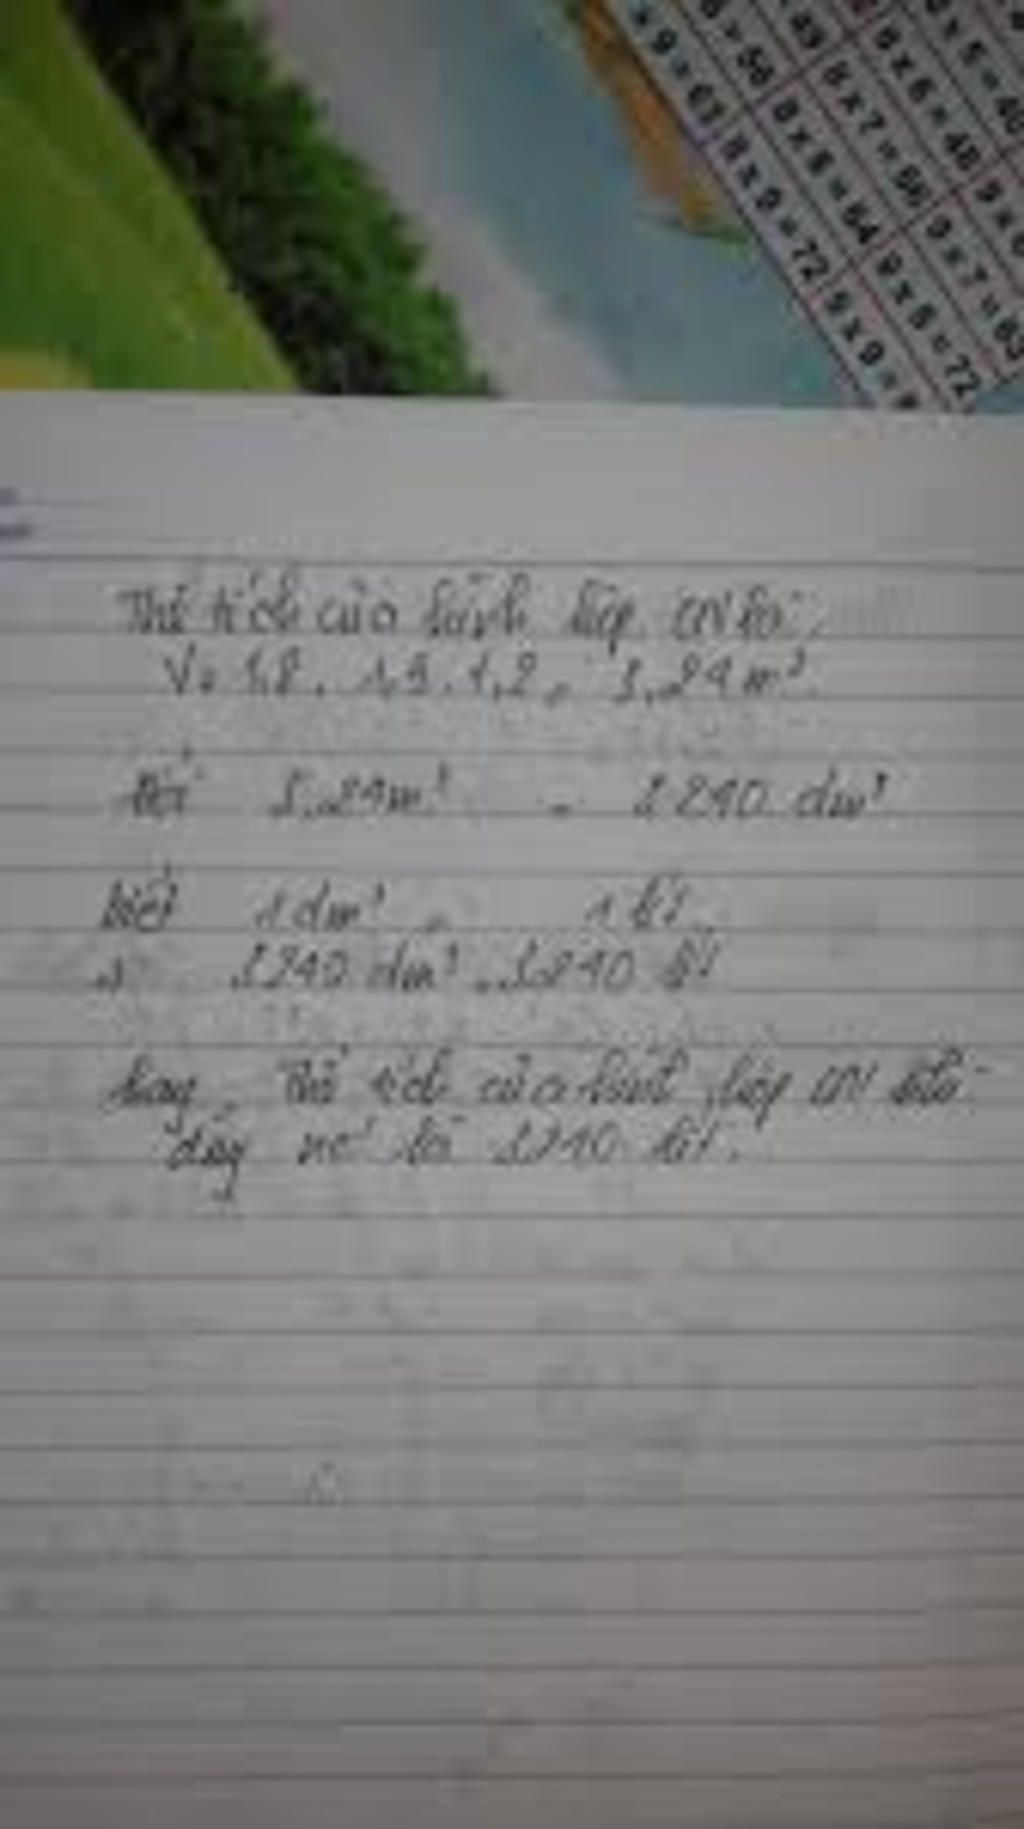 x 9 = 63
8 x 9 = 72
9 x 9 =
= 56
8 x 8 = 64
9 x 8 = 72
49
8 x 7 = 56
9 x 7 = 63
8 x 6 = 48
9 x 6
x 5 = 40
Thể tích của hình hộp CN là:
V = 1,8 . 1,5 . 1,2 = 3,24 m³
3,24 m³ = 3240 dm³
biết 1 dm³ = 1 lít
3240 dm³ = 3240 lít
hay thể tích của hình hộp CN khi
đầy là 3240 lít.